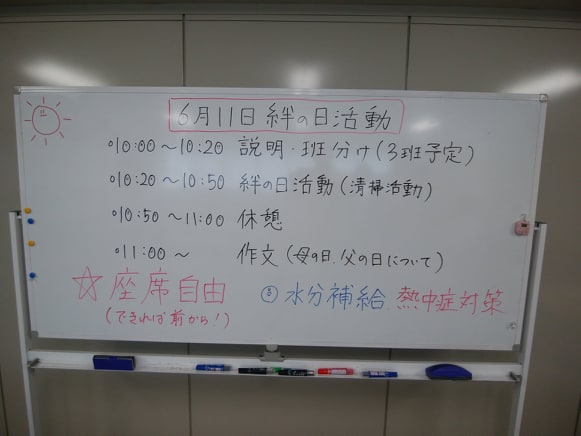 6月11日 絆の日活動
○10:00～10:20 説明・班分け(3班予定)
○10:20～10:50 絆の日活動(清掃活動)
○10:50～11:00 休憩
○11:00～ 作文(母の日、父の日について)
☆座席自由
(できれば前から!)
水分補給、熱中症対策